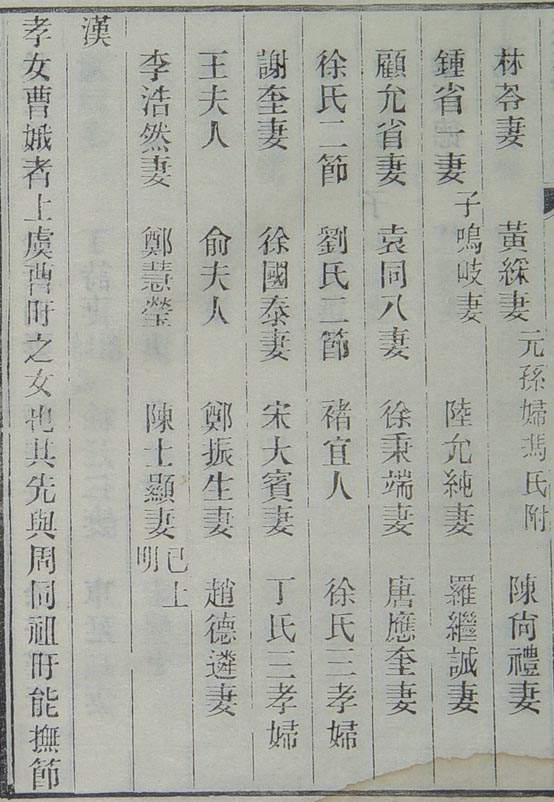 林苓妻 黃綵妻 元孫婦馮氏附 陳尙禮妻
鍾省一妻 子鳴岐妻 陸允純妻 羅繼誠妻
顧允省妻 袁同八妻 徐秉端妻 唐應奎妻
徐氏二節 劉氏二節 褚宜人 徐氏三孝婦
謝奎妻 徐國泰妻 宋大賓妻 丁氏三孝婦
王夫人 俞夫人 鄭振生妻 趙德遴妻
李浩然妻 鄭慧瑩 陳士顯妻 已上明
漢
孝女曹娥者上虞曹盱之女也其先與周同祖盱能撫節